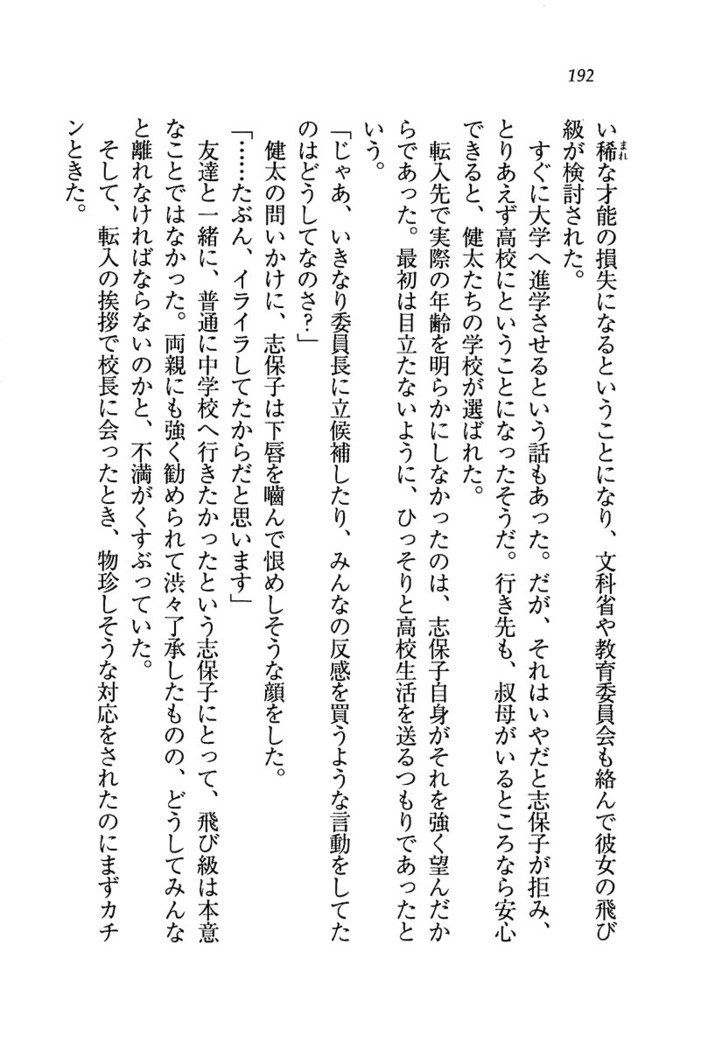 192
い稀な才能の損失になるということになり、文科省や教育委員会も絡んで彼女の飛び
級が検討された。
すぐに大学へ進学させるという話もあった。だが、それはいやだと志保子が拒み、
とりあえず高校にということになったそうだ。行き先も、叔母がいるところなら安心
できると、健太たちの学校が選ばれた。
転入先で実際の年齢を明らかにしなかったのは、志保子自身がそれを強く望んだか
らであった。最初は目立たないように、ひっそりと高校生活を送るつもりであったと
いう。
「じゃあ、いきなり委員長に立候補したり、みんなの反感を買うような言動をしてた
のはどうしてなのさ？」
健太の問いかけに、志保子は下唇を嚙んで恨めしそうな顔をした。
「……たぶん、イライラしてたからだと思います」
友達と一緒に、普通に中学校へ行きたかったという志保子にとって、飛び級は本意
なことではなかった。両親にも強く勧められて渋々了承したものの、どうしてみんな
と離れなければならないのかと、不満がくすぶっていた。
そして、転入の挨拶で校長に会ったとき、物珍しそうな対応をされたのにまずカチ
ンときた。
まれ